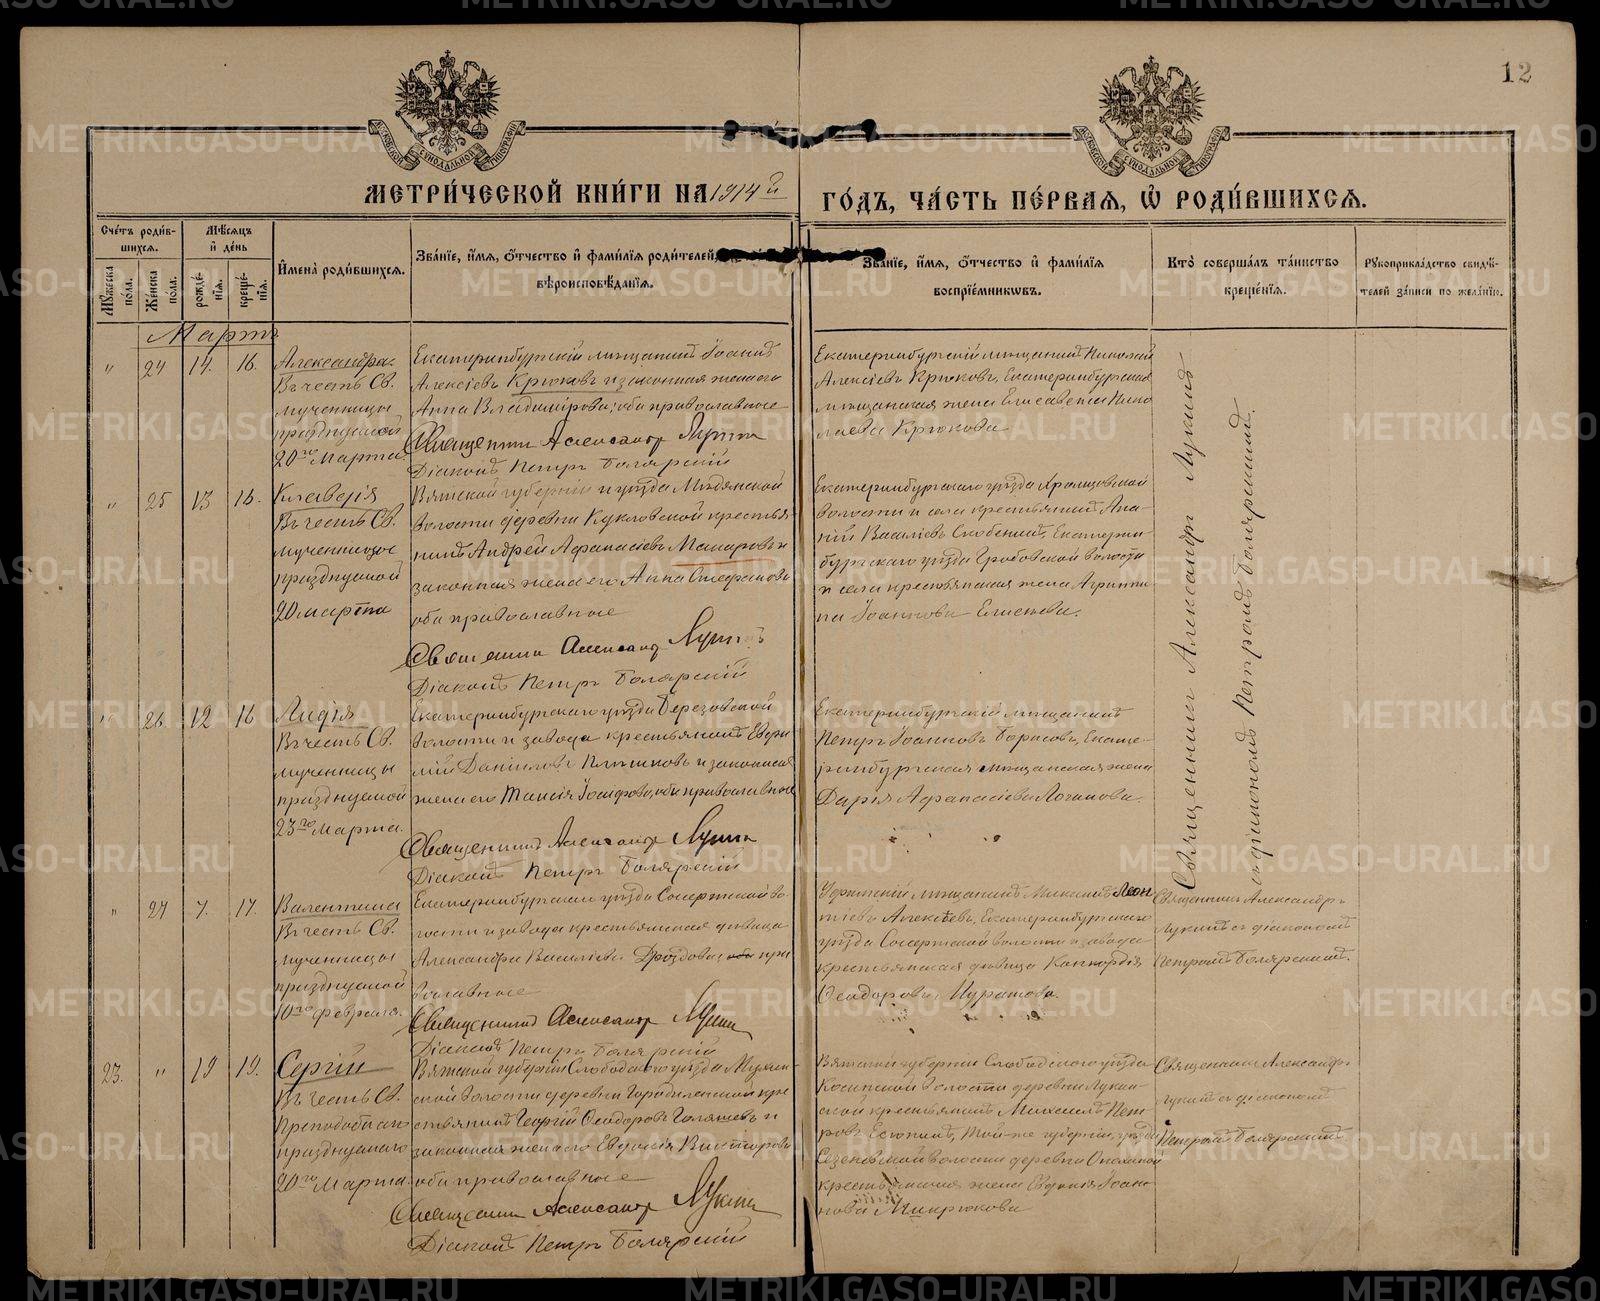 12
МОСКОВСКОЙ СѴНОДАЛЬНОЙ ТИПОГРАФІИ
МОСКОВСКОЙ СѴНОДАЛЬНОЙ ТИПОГРАФІИ
МЕТРИ́ЧЕСКОЙ КНИ́ГИ НА 1914й ГО́ДЪ, ЧА́СТЬ ПЕ́РВАЯ, Ѡ҆ РОДИ́ВШИХСЯ.
Сче́тъ роди́в-
шихся.
Мѣ́сяцъ
и҆ де́нь
Мꙋ́жеска по́ла.
Же́нска по́ла.
рожде́-
нїя.
креще́-
нїя.
И҆мена̀ роди́вшихся.
Зва́нїе, и҆́мя, ѻ҆́тчество и҆ фамѝлїя роди́телей,
вѣроисповѣ́данїя.
Зва́нїе, и҆́мя, ѻ҆́тчество и҆ фами́лїя
воспрїе́мникѡвъ.
Кто̀ соверша́лъ та́инство
креще́нїя.
Рꙋкоприкла́дство свидѣ́-
телей за́писи по жела́нїю.
Мартъ
" 24 14. 16.
Александра
Въ честь Св.
мученицы
празднуемой
20го Марта.
Екатеринбургскій мѣщанинъ Іоаннъ
Алексіевъ Крюковъ и законная жена его
Анна Владимірова; оба православные
Священникъ Александръ Лукинъ
Діаконъ Петръ Боярскій
Екатеринбургскій мѣщанинъ Николай
Алексіевъ Крюковъ, Екатеринбургская
мѣщанская жена Елисавета Нико
лаева Крюкова
Священникъ Александръ Лукинъ
съ діакономъ Петромъ Боярскимъ.
" 25 13 16.
Клавдія
Въ честь Св.
мученицы
празднуемой
20 марта
Вятской губерніи и уѣзда Мѣдянской
волости деревни Кукловской крестья-
нинъ Андрей Афанасіевъ Макаровъ и
законная жена его Анна Стефанова
оба православные
Священникъ Александръ Лукинъ
Діаконъ Петръ Боярскій
Екатеринбургскаго уѣзда
волости и села крестьянинъ Ана-
ній Василіевъ Екатерин-
бургскаго уѣзда Гробовской волости
и села крестьянская жена Агриппи
на Іоаннова
" 26. 12 16
Лидія
Въ честь Св.
мученицы
празднуемой
23го Марта.
Екатеринбургскаго уѣзда Березовской
волости и завода крестьянинъ
Даніиловъ и законная
жена его Таисія Іосифова, оба православные
Священникъ Александръ Лукинъ
Діаконъ Петръ Боярскій
Екатеринбургскій мѣщанинъ
Петръ Іоанновъ Борисовъ, Екате-
ринбургская мѣщанская жена
Дарья Афанасіева Логинова.
" 27 7. 17.
Валентина
Въ честь Св.
мученицы
празднуемой
10го февраля.
Екатеринбургскаго уѣзда Сысертской во-
лости и завода крестьянская дѣвица
Александра Василіева Дроздова, оба пра
вославные
Священникъ Александръ Лукинъ
Діаконъ Петръ Боярскій
Уфимскій мѣщанинъ Леон
тіевъ Алексѣевъ, Екатеринбургскаго
уѣзда Сысертской волости и завода
крестьянская дѣвица Конкордія
Ѳеодорова
Священникъ Александръ
Лукинъ съ діакономъ
Петромъ Боярскимъ.
23. " 19 19.
Сергій
Въ честь Св.
Преподобнаго
празднуемаго
20го Марта.
Вятской губерніи Слободского уѣзда
ской волости деревни кре
стьянинъ Георгій Ѳеодоровъ и
законная жена его Евдокія Викторова
оба православные
Священникъ Александръ Лукинъ
Діаконъ Петръ Боярскій
Вятской губерніи Слободского уѣзда
Косинской волости деревни
ской крестьянинъ Михаилъ Пет
ровъ той-же губерніи, уѣзда
волости деревни
крестьянская жена Евдокія Іоан-
нова
Священникъ Александръ
Лукинъ съ діакономъ
Петромъ Боярскимъ
METRIKI.GASO-URAL.RU